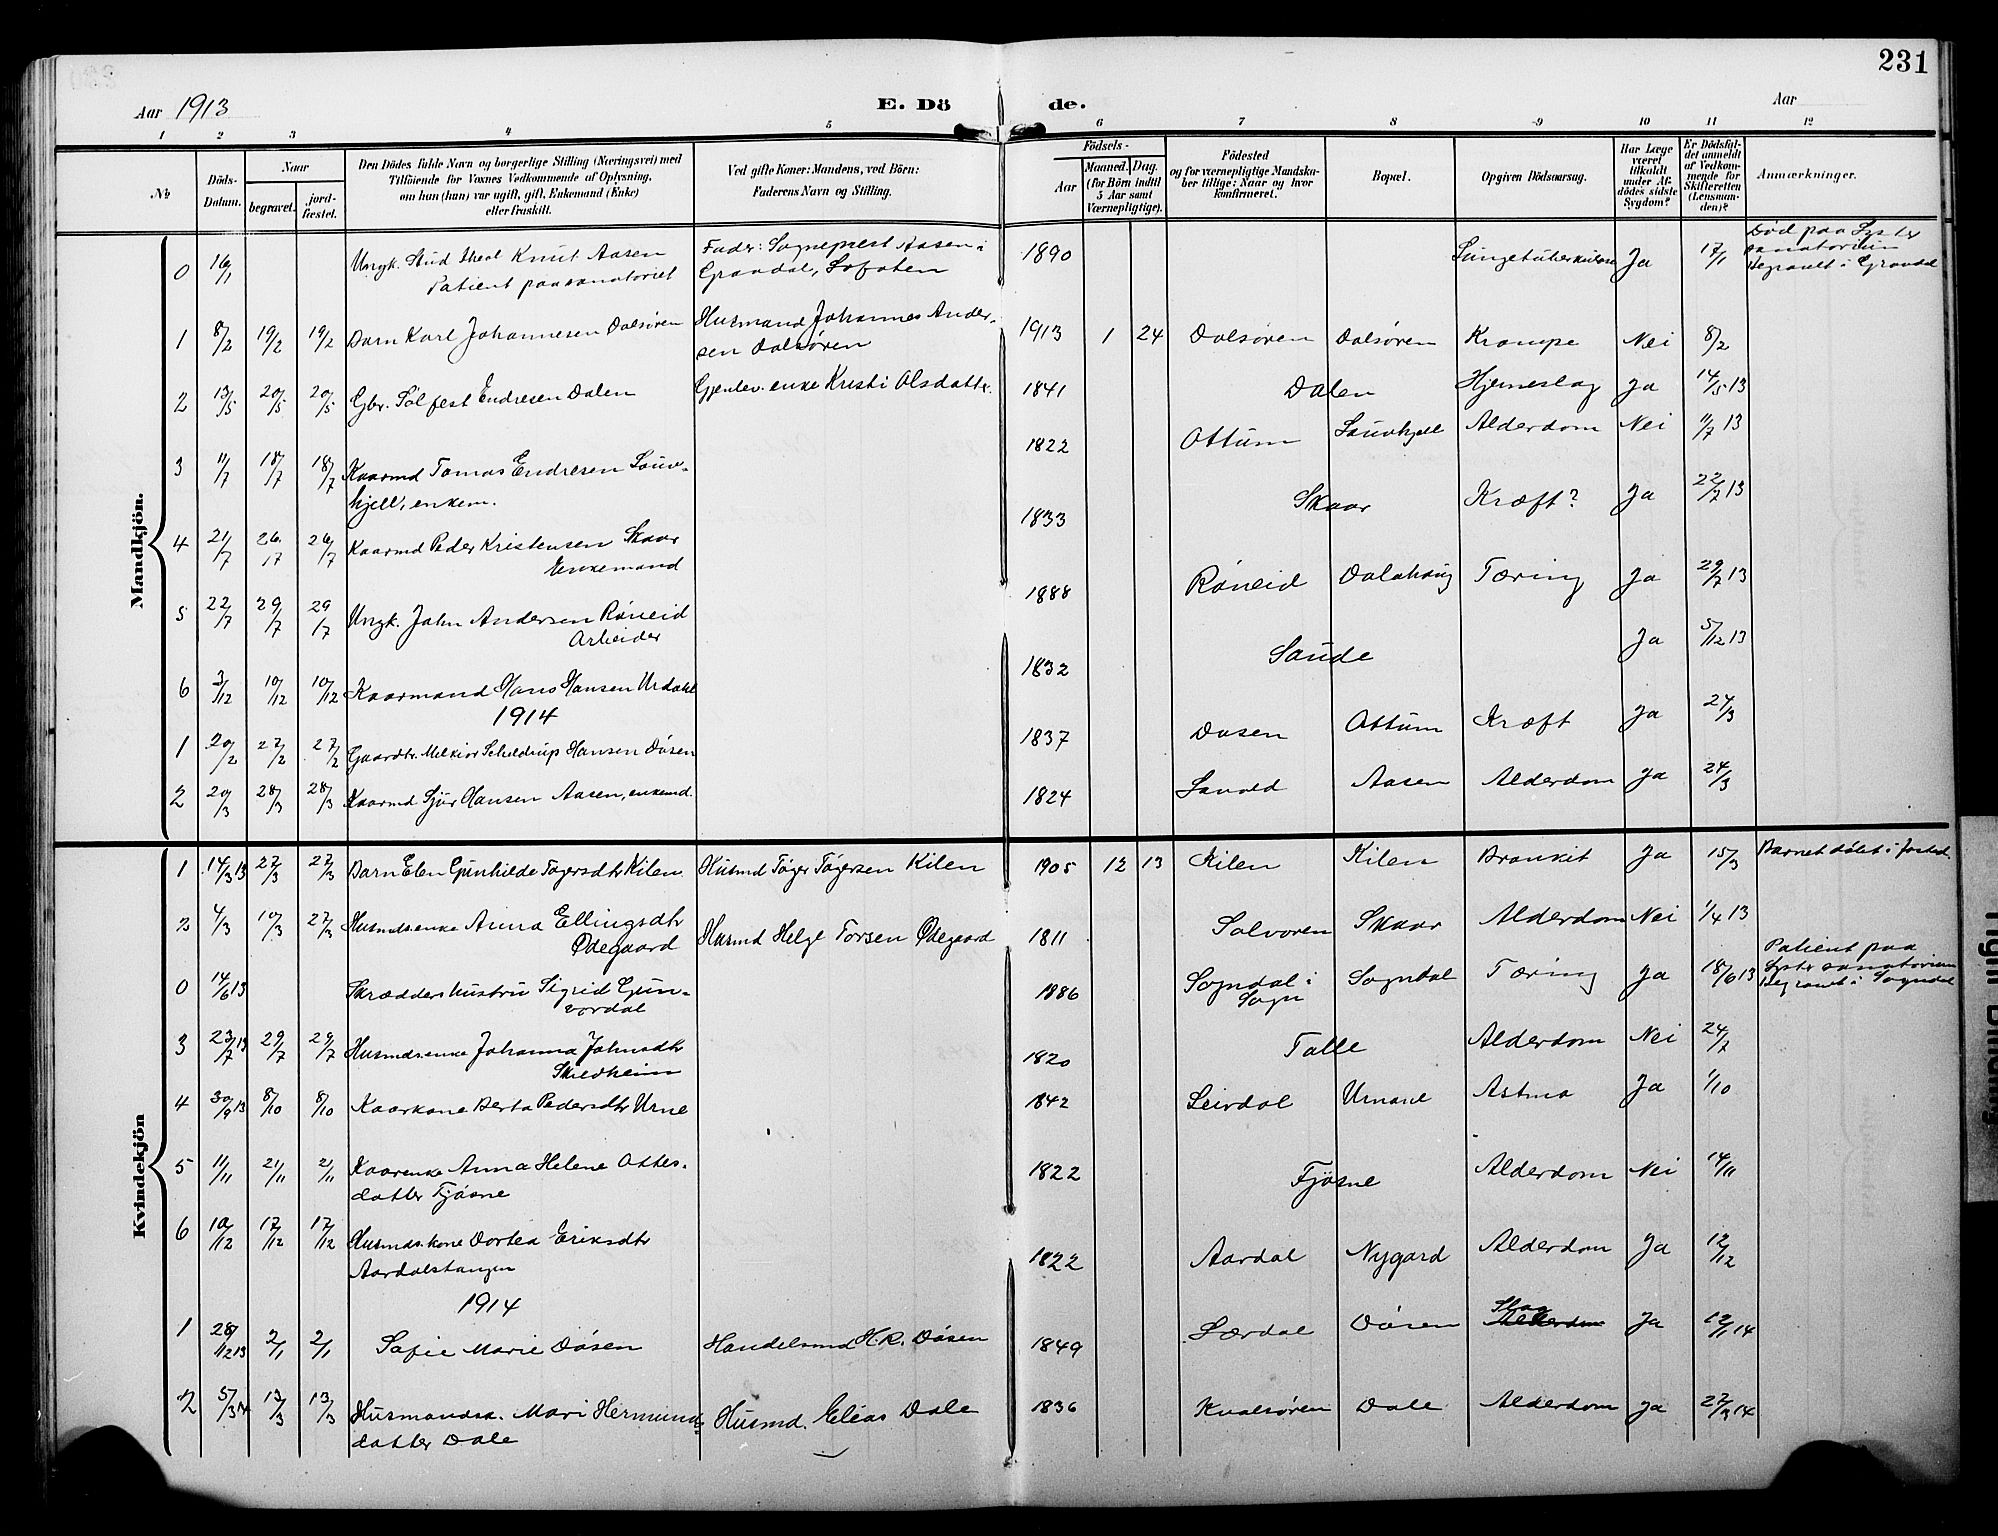 231
Aar 1913
E. Dö de.
Aar
1 2 3 4 5 6 7 8 9 10 11 12
№
Döds-Datum.
Naar
begravet.
jord-fæstet.
Den Dödes fulde Navn og borgerlige Stilling (Næringsvei) med
Tilföiende for Voxnes Vedkommende af Oplysning,
om han (hun) var ugift, gift, Enkemand (Enke)
eller fraskilt.
Ved gifte Koner: Mandens, ved Börn:
Faderens Navn og Stilling.
Födsels-
Aar
Maaned. Dag.
(for Börn indtil
5 Aar samt
Værnepligtige).
Födested
og for værnepligtige Mandska-
ber tillige: Naar og hvor
konfirmeret.
Bopæl.
Opgiven Dödsaarsag.
Har Læge
været
tilkaldt
under Af-
dödes sidste
Sygdom?
Er Dödsfal-
det anmeldt
af Vedkom-
mende for
Skifteretten
(Lensman-
den)?
Anmærkninger.
Mandkjön.
0 16/1 Ungk. Stud. theol Knut Aasen Fader: Sogneprest Aasen i 1890 Lungetuberkulose Ja 17/1 Död paa Lyster
Patient paa sanatoriet Gravdal, Lofoten sanatorium
Begravet i Gravdal
1 8/2 19/2 19/2 Barn Karl Johannesen Dalsøren Husmand Johannes Ander- 1913 1 24 Dalsøren Dalsøren Krampe Nei 8/2
sen Dalsøren
2 13/5 20/5 20/5 Gbr. Sølfest Endresen Dalen Gjenlev. enke Kristi Olsdatter 1841 Dalen Hjerneslag Ja 14/5 13
3 11/7 18/7 18/7 Kaarmd Tomas Endresen Sauv- 1822 Ottum Sauvhjell Alderdom Nei 11/7 13
hjell, enkem.
4 21/7 26/7 26/7 Kaarmd Peder Kristensen Skaar 1833 Skaar Kræft? Ja 22/2 13
Enkemand
5 22/7 29/7 29/7 Ungk. John Andersen Røneid 1888 Røneid Dalahaug Tæring Ja 29/7 13
Arbeider
6 3/12 10/12 10/12 Kaarmand Hans Hansen Urdahl 1832 Sande Ja 5/12 13
1914
1 20/2 27/2 27/2 Gaardbr. Melkior Scheldrup Hansen Døsen 1837 Døsen Ottum Kræft Ja 24/3
2 20/3 28/3 28/3 Kaarmd Sjur Hansen Aasen, enkemd. 1824 Sandvold Aasen Alderdom Ja 24/3
Kvindekjön
1 14/3 13 27/3 27/3 Barn Elen Gunhilde Tøgersdtr Kilen Husmd Tøger Tøgersen Kilen 1905 12 13 Kilen Kilen Bronkit Ja 15/3 Barnet dølet i Jostedal
2 4/3 10/3 27/3 Husmdsenke Anna Ellingsdtr Husmd Helge Torsen Ødegaard 1811 Solvoren Skaar Alderdom Nei 1/4 13
Ødegaard
0 14/6 13 Skrædderhustru Sigrid Gun- 1886 Sogndal i Sogndal Tæring Ja 18/6 13 Patient paa
vordal Sogn Lyster sanatorium
Begravet i Sogndal
3 23/7 13 29/7 29/7 Husmdsenke Johanna Johnsdtr 1820 Talle Alderdom Nei 24/7
Skildheim
4 30/9 13 8/10 8/10 Kaarkone Berta Pedersdtr Urne 1842 Leirdal Urnane Astma Ja 1/10
5 11/11 21/11 21/11 Kaarenke Anna Helene Ottes- 1822 Fjøsne Alderdom Nei 14/11
datter Fjøsne
6 10/12 17/12 17/12 Husmds.kone Dortea Eriksdtr 1822 Aardal Nygard Alderdom Ja 12/12
Aardalstangen
1914
1 28/12 13 2/1 2/1 Sofie Marie Døsen Handelsmd H. R. Døsen 1849 Lærdal Døsen Slag Alderdom Ja 12/1 14
2 5/3 14 13/3 13/3 Husmandsk. Mari Hermund- Husmd. Elias Dale 1836 Kvalsøren Dale Alderdom Ja 27/3 14
datter Dale